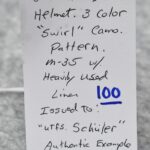 Helmet. 3 Color
"Swirl" Camo.
Pattern.
M-35 w/.
Heavily used
Liner 100
Issued to:
"Uffs. Schüler"
Authentic Example